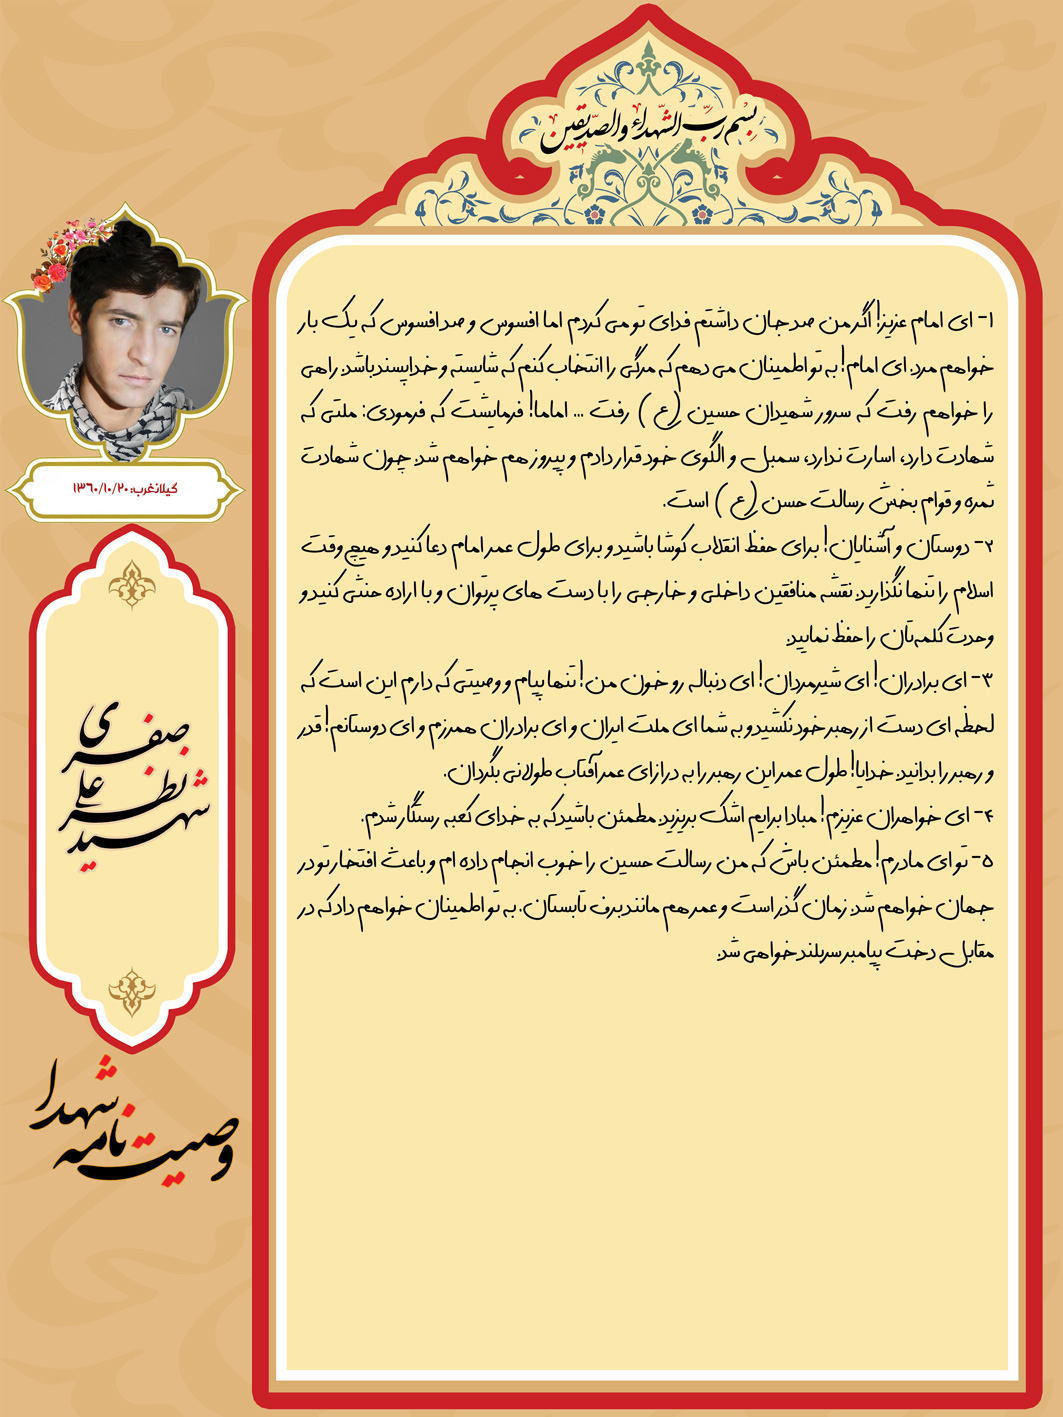 بسم ربّ الشّهداء والصّدیقین
۱- ای امام عزیز! اگر من صد جان داشتم فدای تو می کردم اما افسوس و صد افسوس که یک بار
خواهم مرد. ای امام! به تو اطمینان می دهم که مرگی را انتخاب کنم که شایسته و خداپسند باشد. راهی
را خواهم رفت که سرور شهیدان حسین (ع) رفت ... اماما! فرمایشت که فرمودی: ملتی که
شهادت دارد، اسارت ندارد، سمبل و الگوی خود قرار دادم و پیروز هم خواهم شد. چون شهادت
ثمره و قوام بخش رسالت حسن (ع) است.
۲- دوستان و آشنایان! برای حفظ انقلاب کوشا باشید و برای طول عمر امام دعا کنید و هیچ وقت
اسلام را تنها نگذارید. نقشه منافقین داخلی و خارجی را با دست های پرتوان و با اراده خنثی کنید و
وحدت کلمه‌تان را حفظ نمایید.
۳- ای برادران! ای شیرمردان! ای دنباله رو خون من! تنها پیام و وصیتی که دارم این است که
لحظه ای دست از رهبر خود نکشید و به شما ای ملت ایران و ای برادران همرزم و ای دوستانم! قدر
و رهبر را بدانید. خدایا! طول عمر این رهبر را به درازای عمر آفتاب طولانی بگردان.
۴- ای خواهران عزیزم! مبادا برایم اشک بریزید. مطمئن باشید که به خدای کعبه رستگار شدم.
۵- تو ای مادرم! مطمئن باش که من رسالت حسین را خوب انجام داده ام و باعث افتخار تو در
جهان خواهم شد. زمان گذر است و عمر هم مانند برف تابستان. به تو اطمینان خواهم داد که در
مقابل دخت پیامبر سربلند خواهی شد.
گیلانغرب: ۱۳۶۰/۱۰/۲۰
شهید
نظرعلی
صفری
وصیت نامه
شهدا